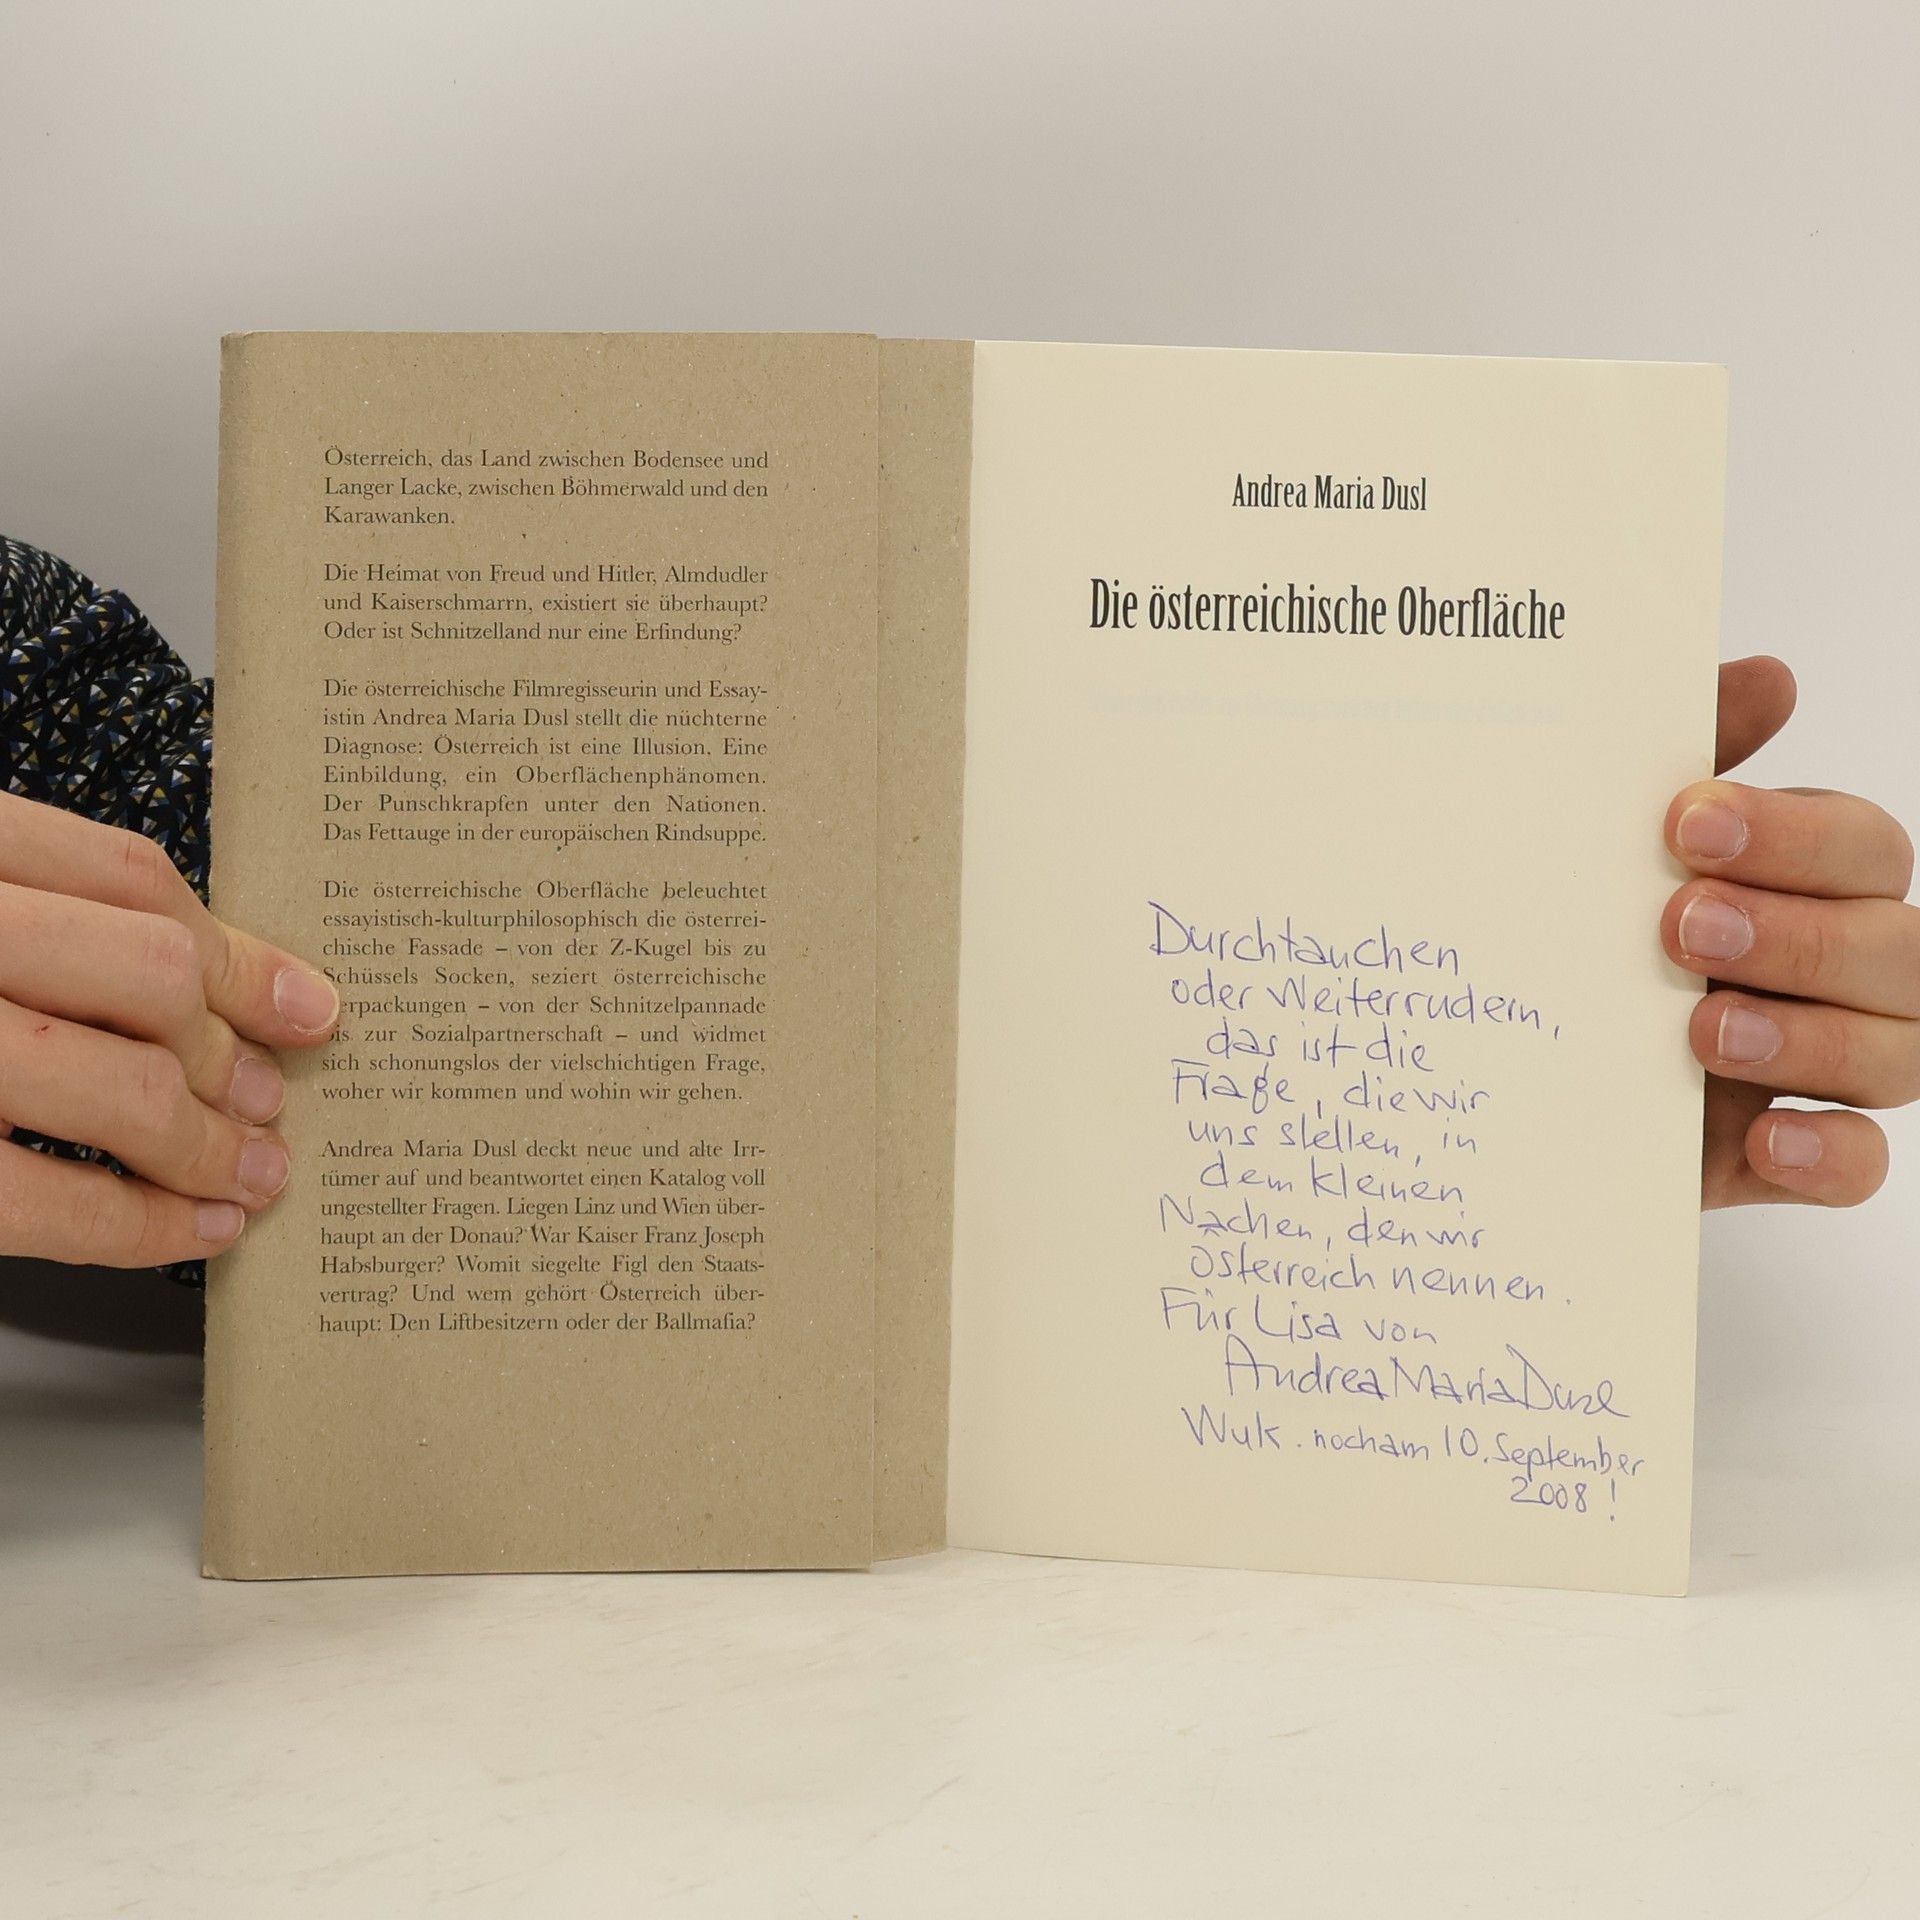 Österreich, das Land zwischen Bodensee und
Langer Lacke, zwischen Böhmerwald und den
Karawanken.
Die Heimat von Freud und Hitler, Almdudler
und Kaiserschmarrn, existiert sie überhaupt?
Oder ist Schnitzelland nur eine Erfindung?
Die österreichische Filmregisseurin und Essay-
istin Andrea Maria Dusl stellt die nüchterne
Diagnose: Österreich ist eine Illusion. Eine
Einbildung, ein Oberflächenphänomen.
Der Punschkrapfen unter den Nationen.
Das Fettauge in der europäischen Rindsuppe.
Die österreichische Oberfläche beleuchtet
essayistisch-kulturphilosophisch die österrei-
chische Fassade – von der Z-Kugel bis zu
Schüssels Socken, seziert österreichische
erpackungen – von der Schnitzelpannade
bis zur Sozialpartnerschaft – und widmet
sich schonungslos der vielschichtigen Frage,
woher wir kommen und wohin wir gehen.
Andrea Maria Dusl deckt neue und alte Irr-
tümer auf und beantwortet einen Katalog voll
ungestellter Fragen. Liegen Linz und Wien über-
haupt an der Donau? War Kaiser Franz Joseph
Habsburger? Womit siegelte Figl den Staats-
vertrag? Und wem gehört Österreich über-
haupt: Den Liftbesitzern oder der Ballmafia?
Andrea Maria Dusl
Die österreichische Oberfläche
Durchtauchen
oder Weiterrudern,
das ist die
Frage, die wir
uns stellen, in
dem kleinen
Nachen, den wir
Österreich nennen.
Für Lisa von
Andrea Maria Dusl
Wuk. noch am 10. September
2008!